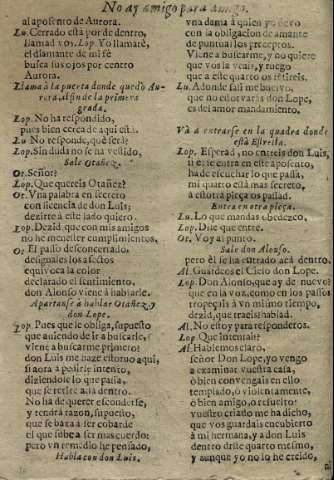 No ay amigo para amigo.
al aposento de Aurora.
Lu. Cerrado está por de dentro,
llamad vos. Lop. Yo llamarè,
el diamante de mi fè
busca sus ojos por centro
Aurora.
Llama à la puerta donde quedò Au-
rora, al fin de la primera
grada.
Lop. No ha respondido,
pues bien cerca de aqui está.
Lu No responde, què serà?
Lop. Sin duda no se ha vestido,
Sale Otañez.
Ot. Señor?
Lop. Que quereis Otañez?
Ot. Vna palabra en secreto
con licencia de don Luis;
dezirte à este lado quiero.
Lop. Dezid, que con mis amigos
no he menester cumplimientos.
Ot El passo desconcertado,
desiguales los afectos
equivoca la color
declarado el sentimiento,
don Alonso viene à hablarte.
Apartanse à hablar Otañez, y
don Lope.
Lop. Pues que le obliga, supuesto
que aviendo de ir a buscarle,
viene a buscarme primero?
don Luis me haze estorvo aqui,
si aora à pedirle intento,
diziendole lo que passa,
que se retire allà dentro.
No ha de querer esconderse,
y tendrà razon, supuesto,
que se baxa à ser cobarde
el que sube à ser mas cuerdo:
pero vn remedio he pensado,
Habla con don Luis.
vna dama à quien yo devo
con la obligacion de amante
de puntual los preceptos.
Viene a buscarme, y no quiere
que vos la veais, y ruego
que a este quarto os retireis.
Lu. Adonde sali me buelvo,
que no estorvaràs don Lope,
es del amor mandamiento.
Và à entrarse en la quadra donde
està Estrella.
Lop. Esperad, no entreis don Luis,
si este entra en este aposento,
ha de escuchar lo que passa,
mi quarto està mas secreto,
a estotra pieça os passad.
Entra en otra pieça.
Lu. Lo que mandas obedezco,
Lop. Dile que entre.
Ot. Voy al punto.
Sale don Alonso.
pero èl se ha entrado acà dentro.
Al. Guardeos el Cielo don Lope.
Lop. Don Alonso, que ay de nuevo?
que en la voz, como en los passos
tropeçais à vn mismo tiempo,
dezid, que traeis? hablad.
Al. No estoy para responderos.
Lop. Que intentais?
Al. Hablemos claro,
señor Don Lope, yo vengo
a examinar vuestra casa,
ò bien convengais en ello
templado, ò violentamente,
ò bien amigo, ò resuelto:
vuestro criado me ha dicho,
que vos guardais encubierto
à mi hermana, y a don Luis
dentro deste quarto mesmo,
y aunque yo no lo he creido,